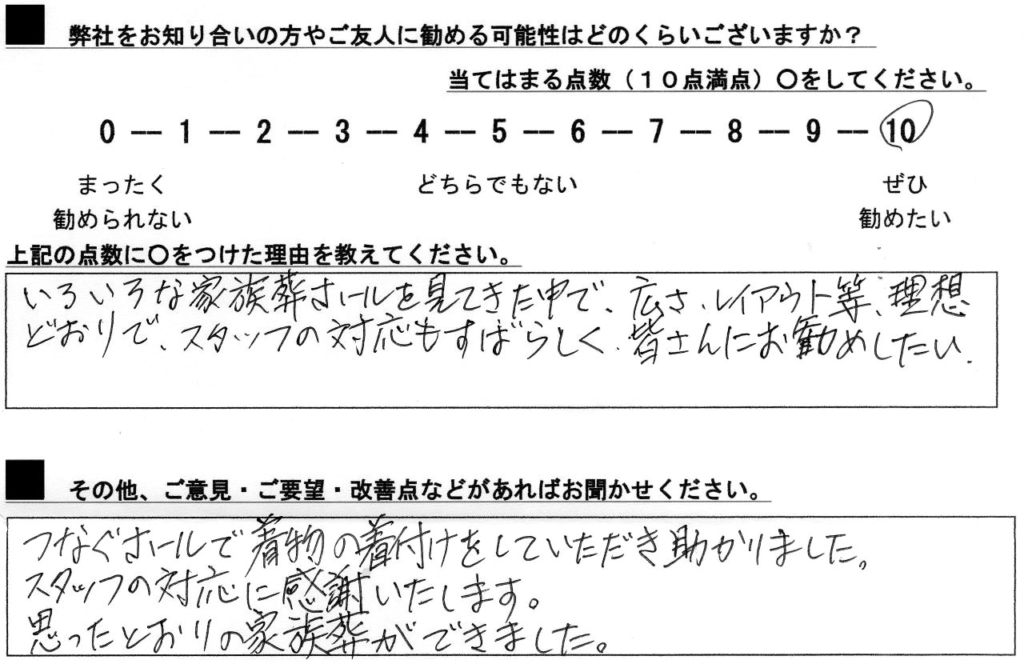 弊社をお知り合いの方やご友人に勧める可能性はどのくらいございますか？
当てはまる点数（１０点満点）〇をしてください。
0 -- 1 -- 2 -- 3 -- 4 -- 5 -- 6 -- 7 -- 8 -- 9 -- 10
まったく どちらでもない ぜひ
勧められない 勧めたい
上記の点数に〇をつけた理由を教えてください。
いろいろな家族葬ホールを見てきた中で、広さ、レイアウト等、理想
どおりで、スタッフの対応もすばらしく、皆さんにお勧めしたい。
その他、ご意見・ご要望・改善点などがあればお聞かせください。
つなぐホールで着物の着付けをしていただき助かりました。
スタッフの対応に感謝いたします。
思ったとおりの家族葬ができました。